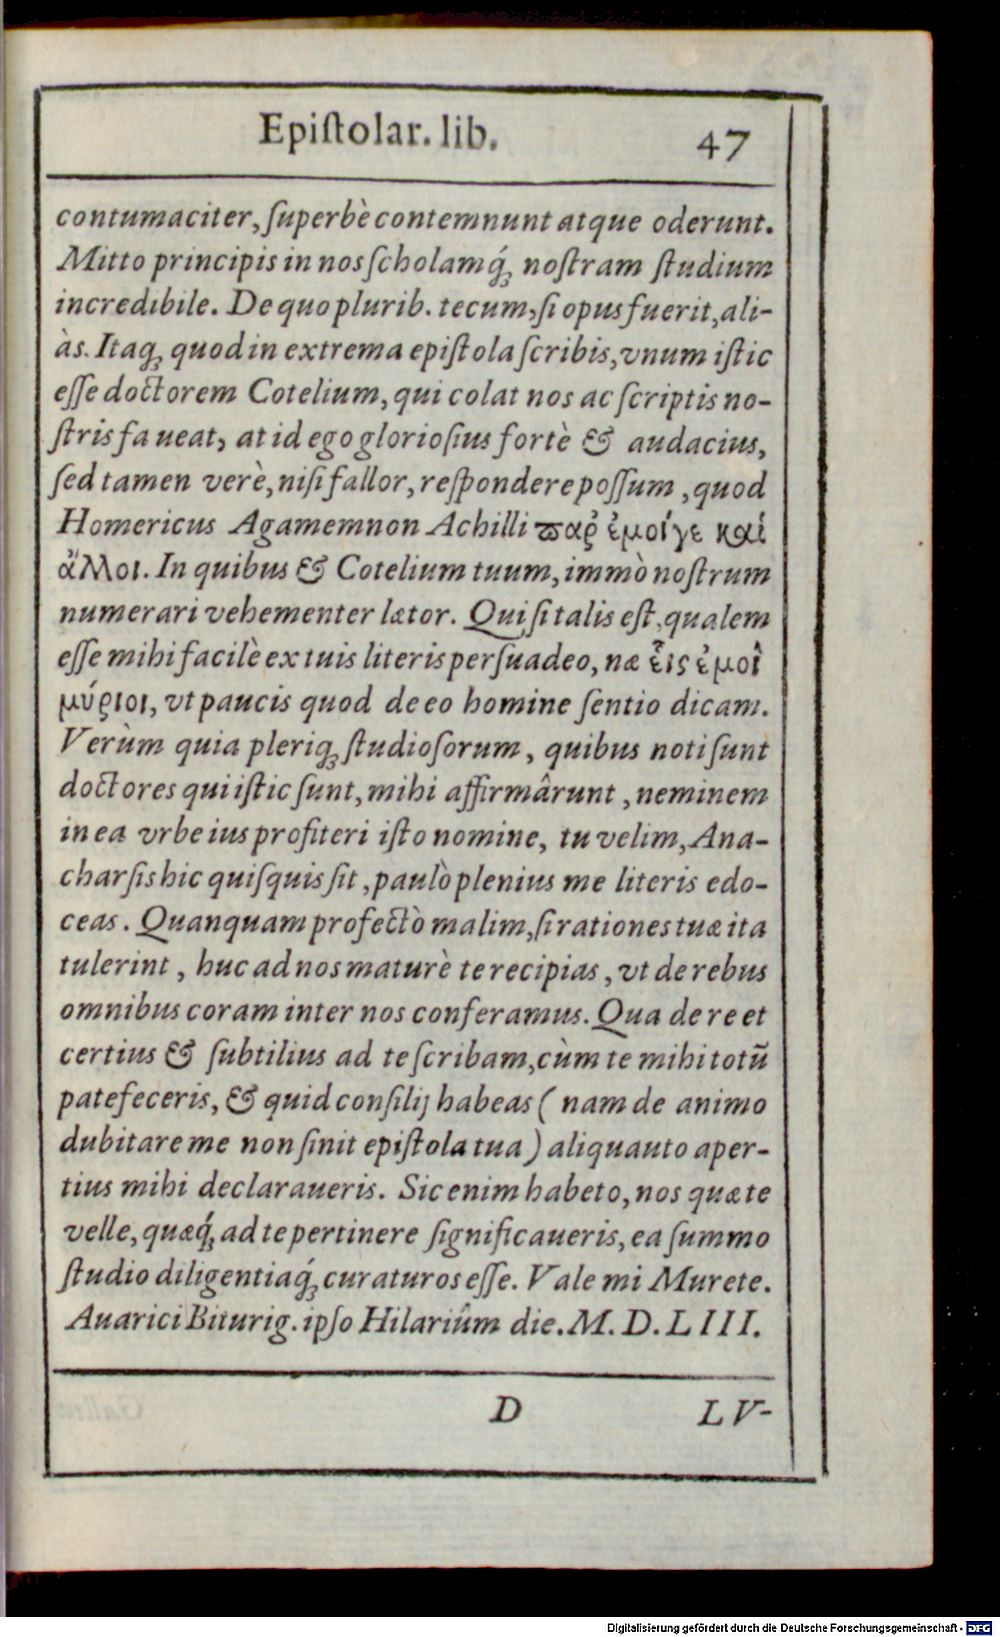 Epiſtolar. lib. 47
contumaciter, ſuperbè contemnunt atque oderunt.
Mitto principis in nos ſcholamq́ꝫ noſtram ſtudium
incredibile. De quo plurib. tecum, ſi opus fuerit, ali-
às. Itaqꝫ quod in extrema epiſtola ſcribis, vnum iſtic
eſſe doctorem Cotelium, qui colat nos ac ſcriptis no-
ſtris faueat, at id ego glorioſius fortè & audacius,
ſed tamen verè, niſi fallor, reſpondere poſſum, quod
Homericus Agamemnon Achilli ϖαῤ ἐμοίγε καί
ἄλλοι. In quibus & Cotelium tuum, immò noſtrum
numerari vehementer lætor. Qui ſi talis eſt, qualem
eſſe mihi facilè ex tuis literis perſuadeo, næ εἷις ἐμοὶ
μύριοι, vt paucis quod de eo homine ſentio dicam.
Verùm quia pleriqꝫ ſtudioſorum, quibus noti ſunt
doctores qui iſtic ſunt, mihi affirmârunt, neminem
in ea vrbe ius profiteri iſto nomine, tu velim, Ana-
charſis hic quiſquis ſit, paulò plenius me literis edo-
ceas. Quanquam profectò malim, ſi rationes tuæ ita
tulerint, huc ad nos maturè te recipias, vt de rebus
omnibus coram inter nos conferamus. Qua de re et
certius & ſubtilius ad te ſcribam, cùm te mihi totū
patefeceris, & quid conſilij habeas ( nam de animo
dubitare me non ſinit epiſtola tua ) aliquauto aper-
tius mihi declaraueris. Sic enim habeto, nos quæ te
velle, quæq́ꝫ ad te pertinere ſignificaueris, ea ſummo
ſtudio diligentiaq́ꝫ curaturos eſſe. Vale mi Murete.
Auarici Biturig. ipſo Hilariûm die. M. D. LIII.
D LV-
Digitalisierung gefördert durch die Deutsche Forschungsgemeinschaft - DFG